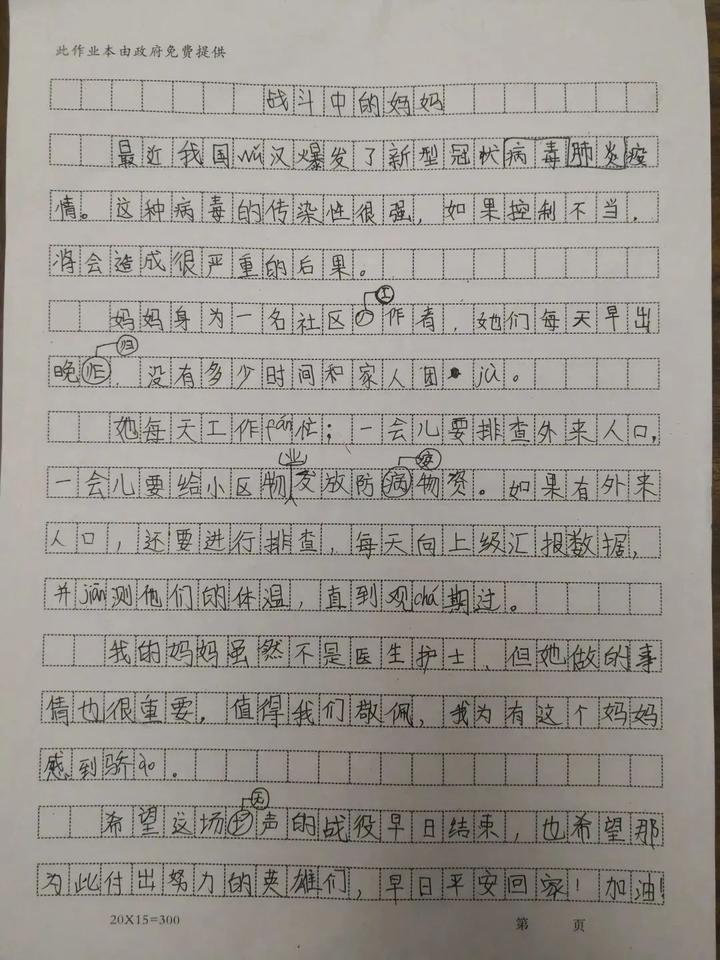 此作业本由政府免费提供
战斗中的妈妈
最近我国wǔ汉爆发了新型冠状病毒肺炎疫
情。这种病毒的传染性很强，如果控制不当，
将会造成很严重的后果。
妈妈身为一名社区工作者，她们每天早出
晚归，没有多少时间和家人团jù。
她每天工作fán忙；一会儿要排查外来人口，
一会儿要给小区物业发放防疫物资。如果有外来
人口，还要进行排查，每天向上级汇报数据，
并jiān测他们的体温，直到观chá期过。
我的妈妈虽然不是医生护士、但她做的事
情也很重要，值得我们敬佩，我为有这个妈妈
感到骄ào。
希望这场无声的战役早日结束，也希望那
为此付出努力的英雄们，早日平安回家！加油！
20X15=300
第 页